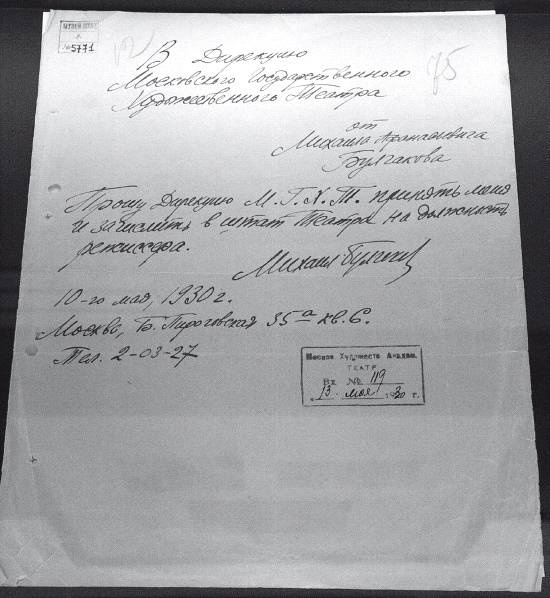 № 5771
75
В Дирекцию
Московского Государственного
Художественного Театра
от
Михаила Афанасьевича
Булгакова
Прошу Дирекцию М. Г. Х. Т. принять меня
и зачислить в штат Театра на должность
режиссера.
Михаил Булгаков
10-го мая, 1930 г.
Москва, Б. Пироговская 35а кв. 6.
Тел. 2-03-27
Москов Художеств Академ.
ТЕАТР
Вх № 119
"13" мая 1930 г.